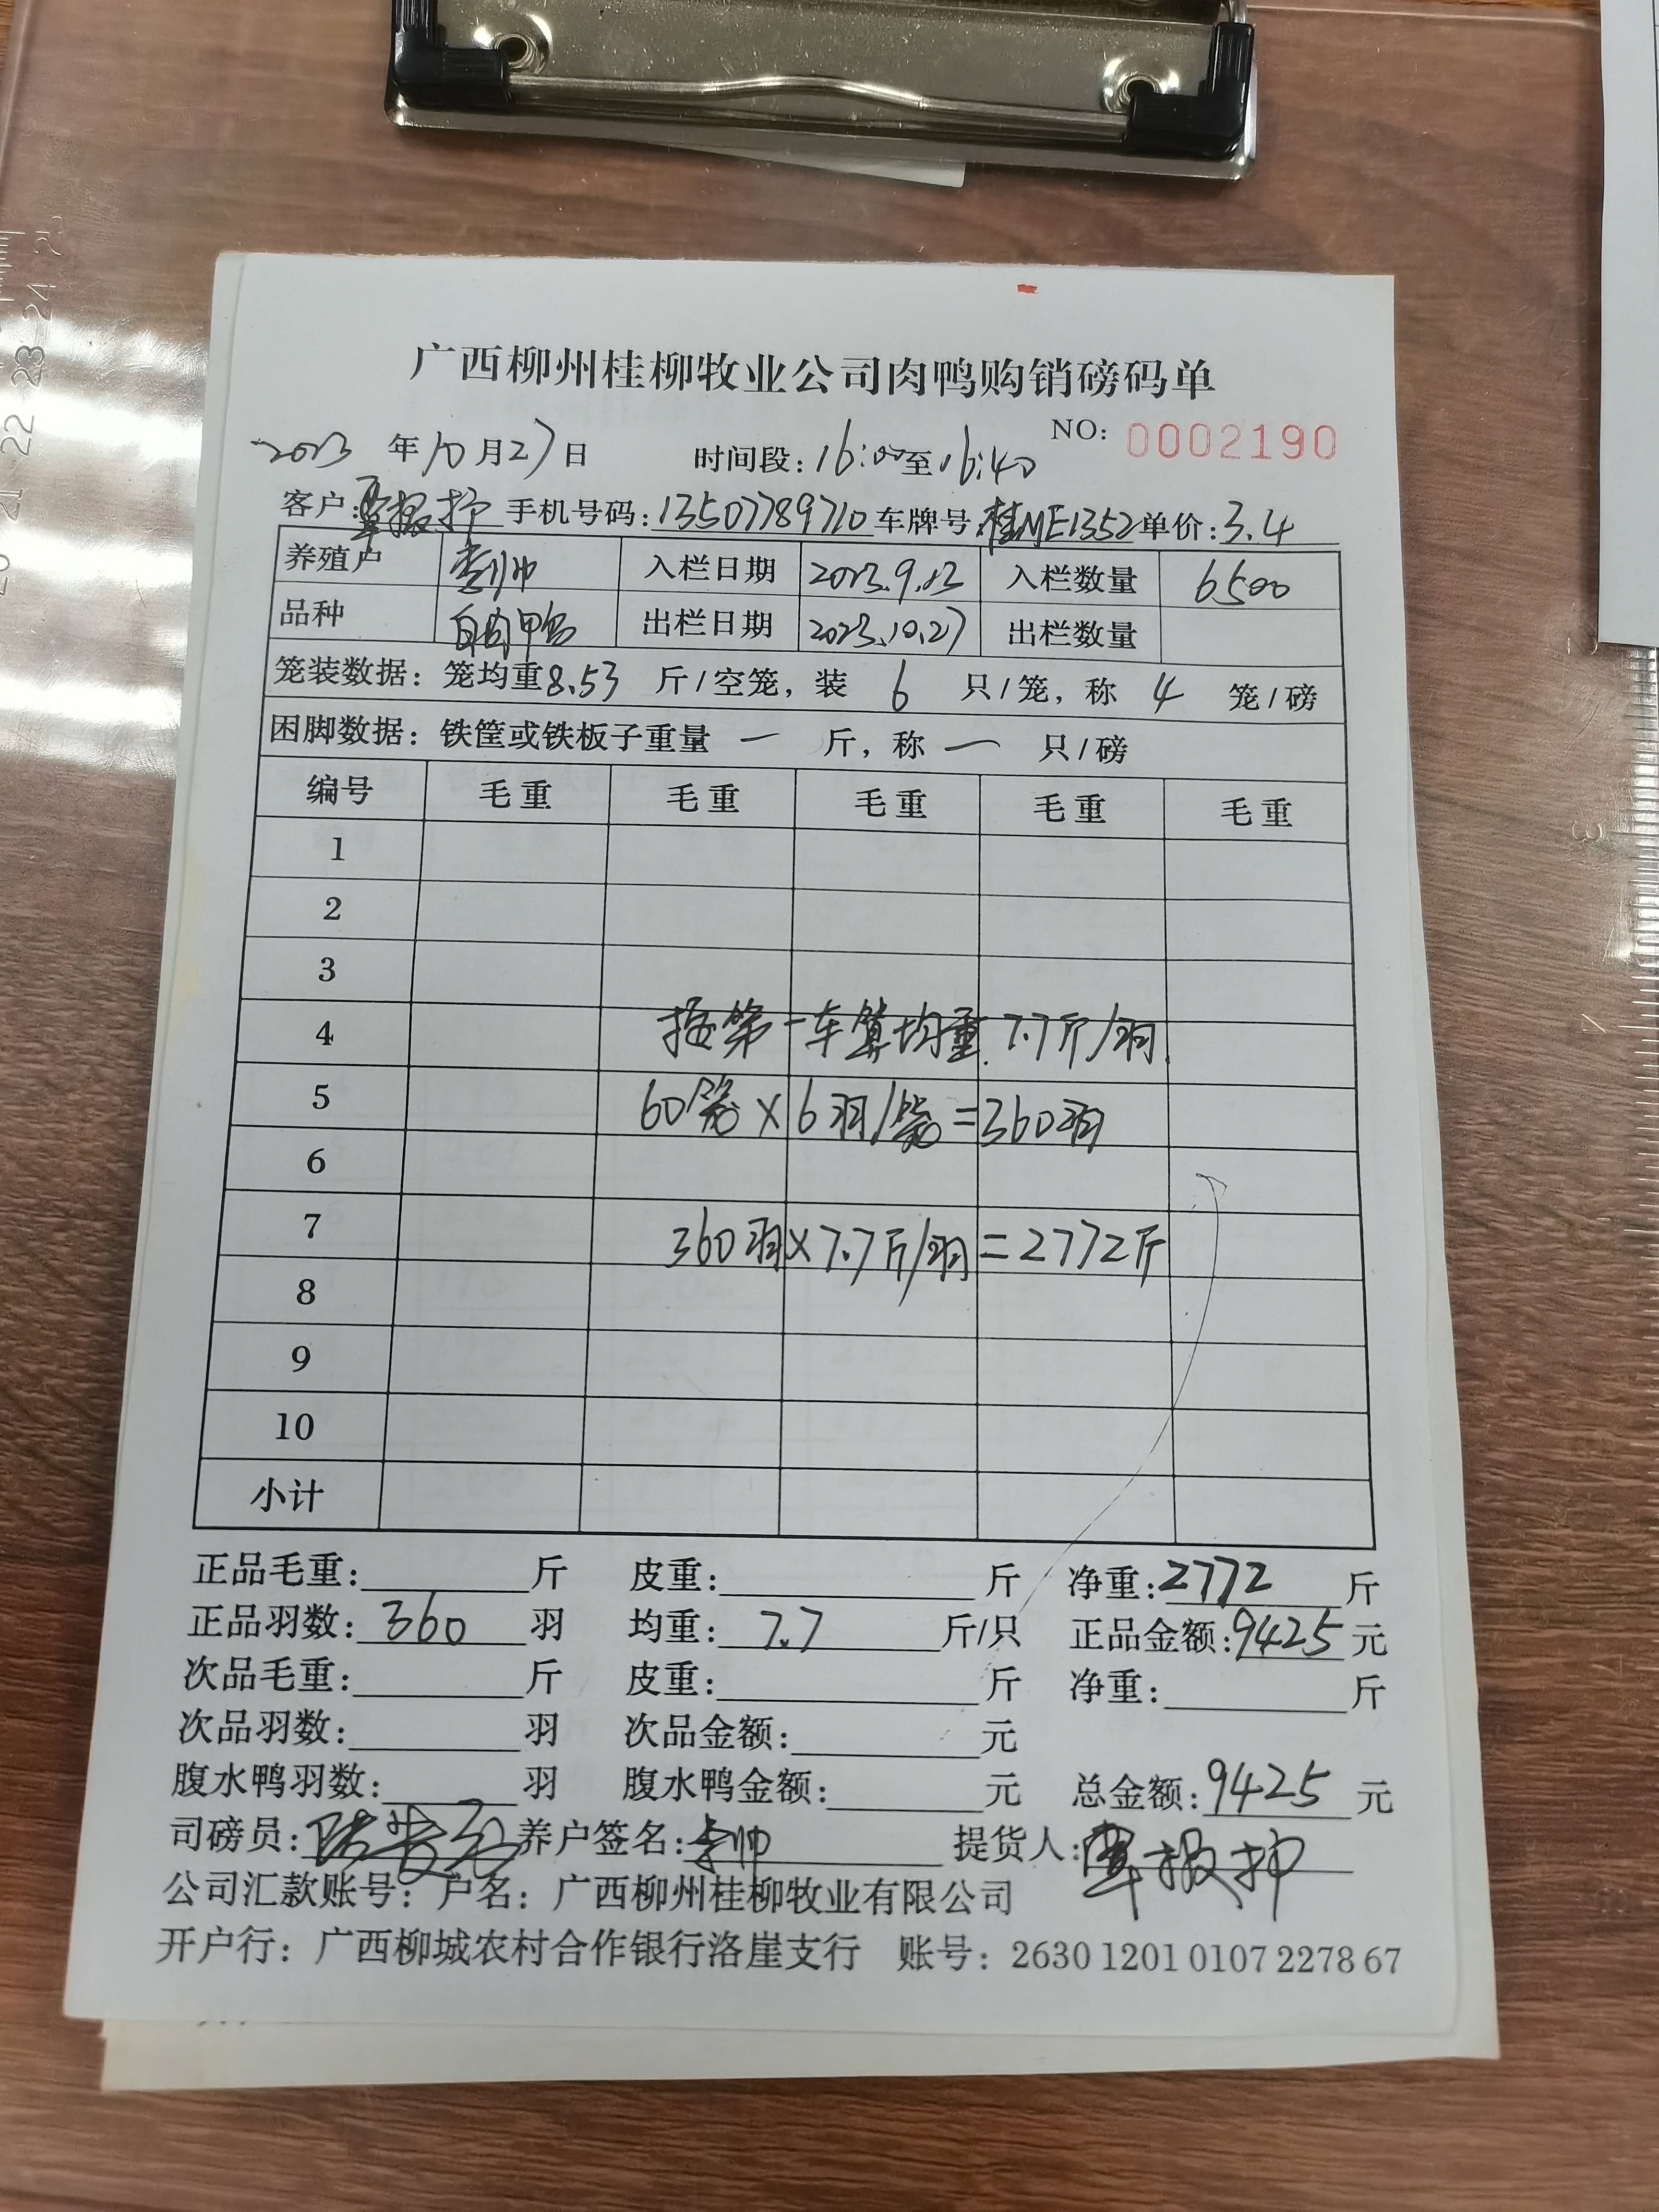 广西柳州桂柳牧业公司肉鸭购销磅码单
NO: 0002190
2023 年 10 月 27 日 时间段: 16:00 至 16:40
客户: 覃振扞 手机号码: 13507789710 车牌号: 桂ME1352 单价: 3.4
养殖户 李帅 入栏日期 2023.9.13 入栏数量 6500
品种 白肉鸭 出栏日期 2023.10.27 出栏数量
笼装数据: 笼均重 8.53 斤/空笼, 装 6 只/笼, 称 4 笼/磅
困脚数据: 铁筐或铁板子重量 一 斤, 称 一 只/磅
编号 毛重 毛重 毛重 毛重 毛重
1
2
3
4 按第一车算均重 7.7斤/羽.
5 60笼×6羽/笼=360羽
6
7 360羽×7.7斤/羽=2772斤
8
9
10
小计
正品毛重: 斤 皮重: 斤 净重: 2772 斤
正品羽数: 360 羽 均重: 7.7 斤/只 正品金额: 9425 元
次品毛重: 斤 皮重: 斤 净重: 斤
次品羽数: 羽 次品金额: 元
腹水鸭羽数: 羽 腹水鸭金额: 元 总金额: 9425 元
司磅员: 养户签名: 李帅 提货人:
公司汇款账号: 户名: 广西柳州桂柳牧业有限公司
开户行: 广西柳城农村合作银行洛崖支行 账号: 2630 1201 0107 2278 67